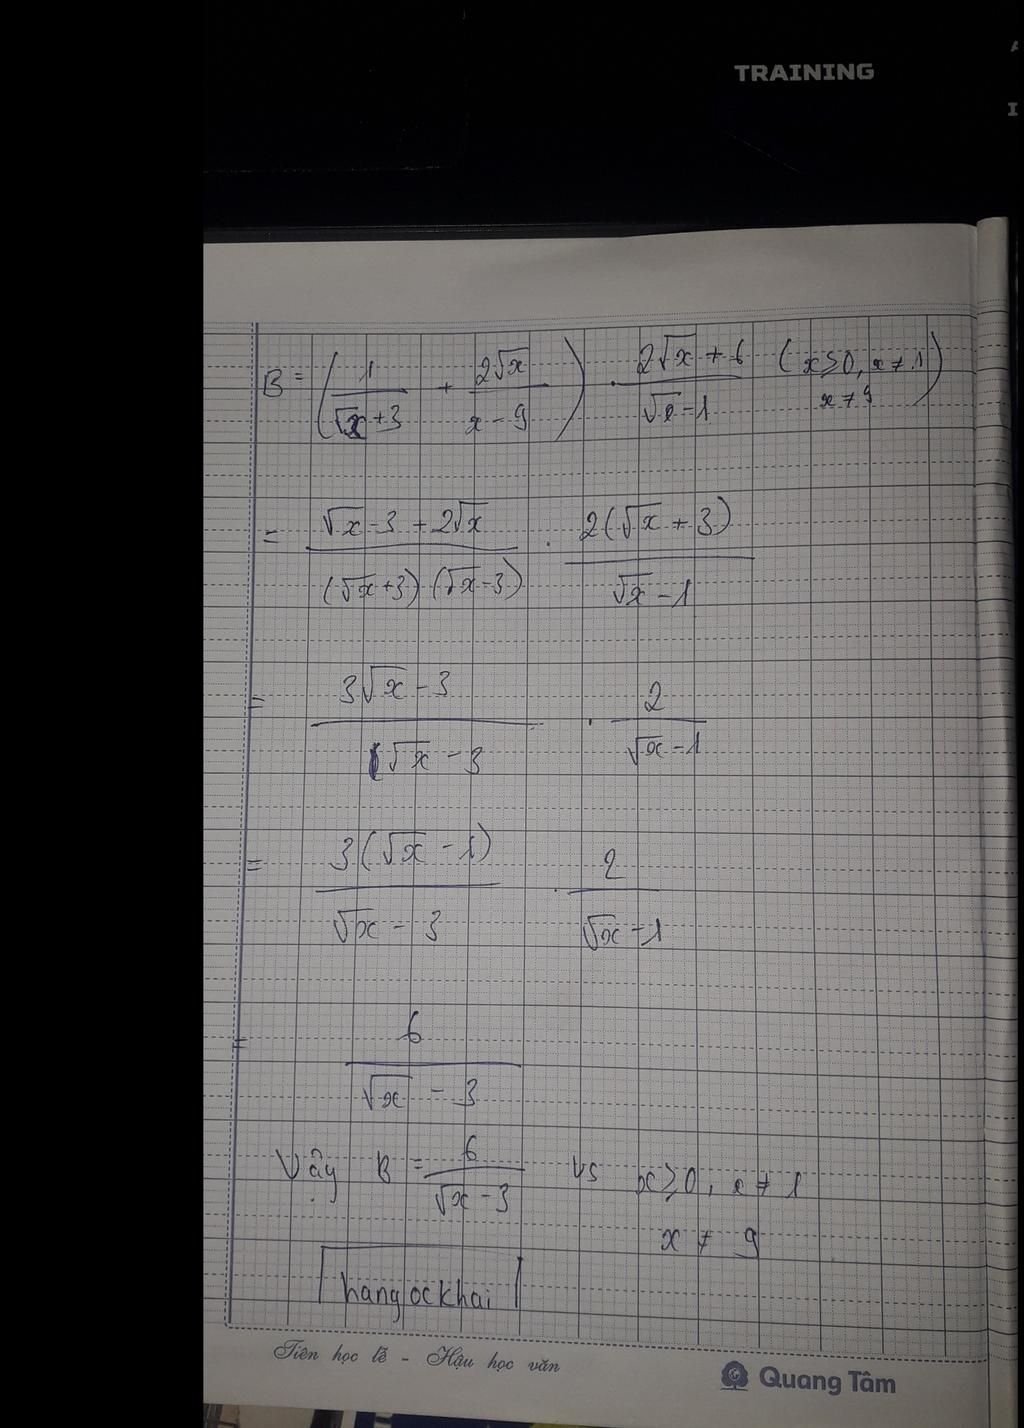 TRAINING
B = (1/(√x+3) + 2√x/(x-9)) . (2√x+6)/(√x-1) (x≥0, x≠1
x≠9)
= (√x-3+2√x)/((√x+3).(√x-3)) . 2(√x+3)/(√x-1)
= (3√x-3)/(√x-3) . 2/(√x-1)
= 3(√x-1)/(√x-3) . 2/(√x-1)
= 6/(√x-3)
Vậy B = 6/(√x-3) vs x≥0, x≠1
x≠9
hangockhai
Tiên học lễ - Hậu học văn
Quang Tâm